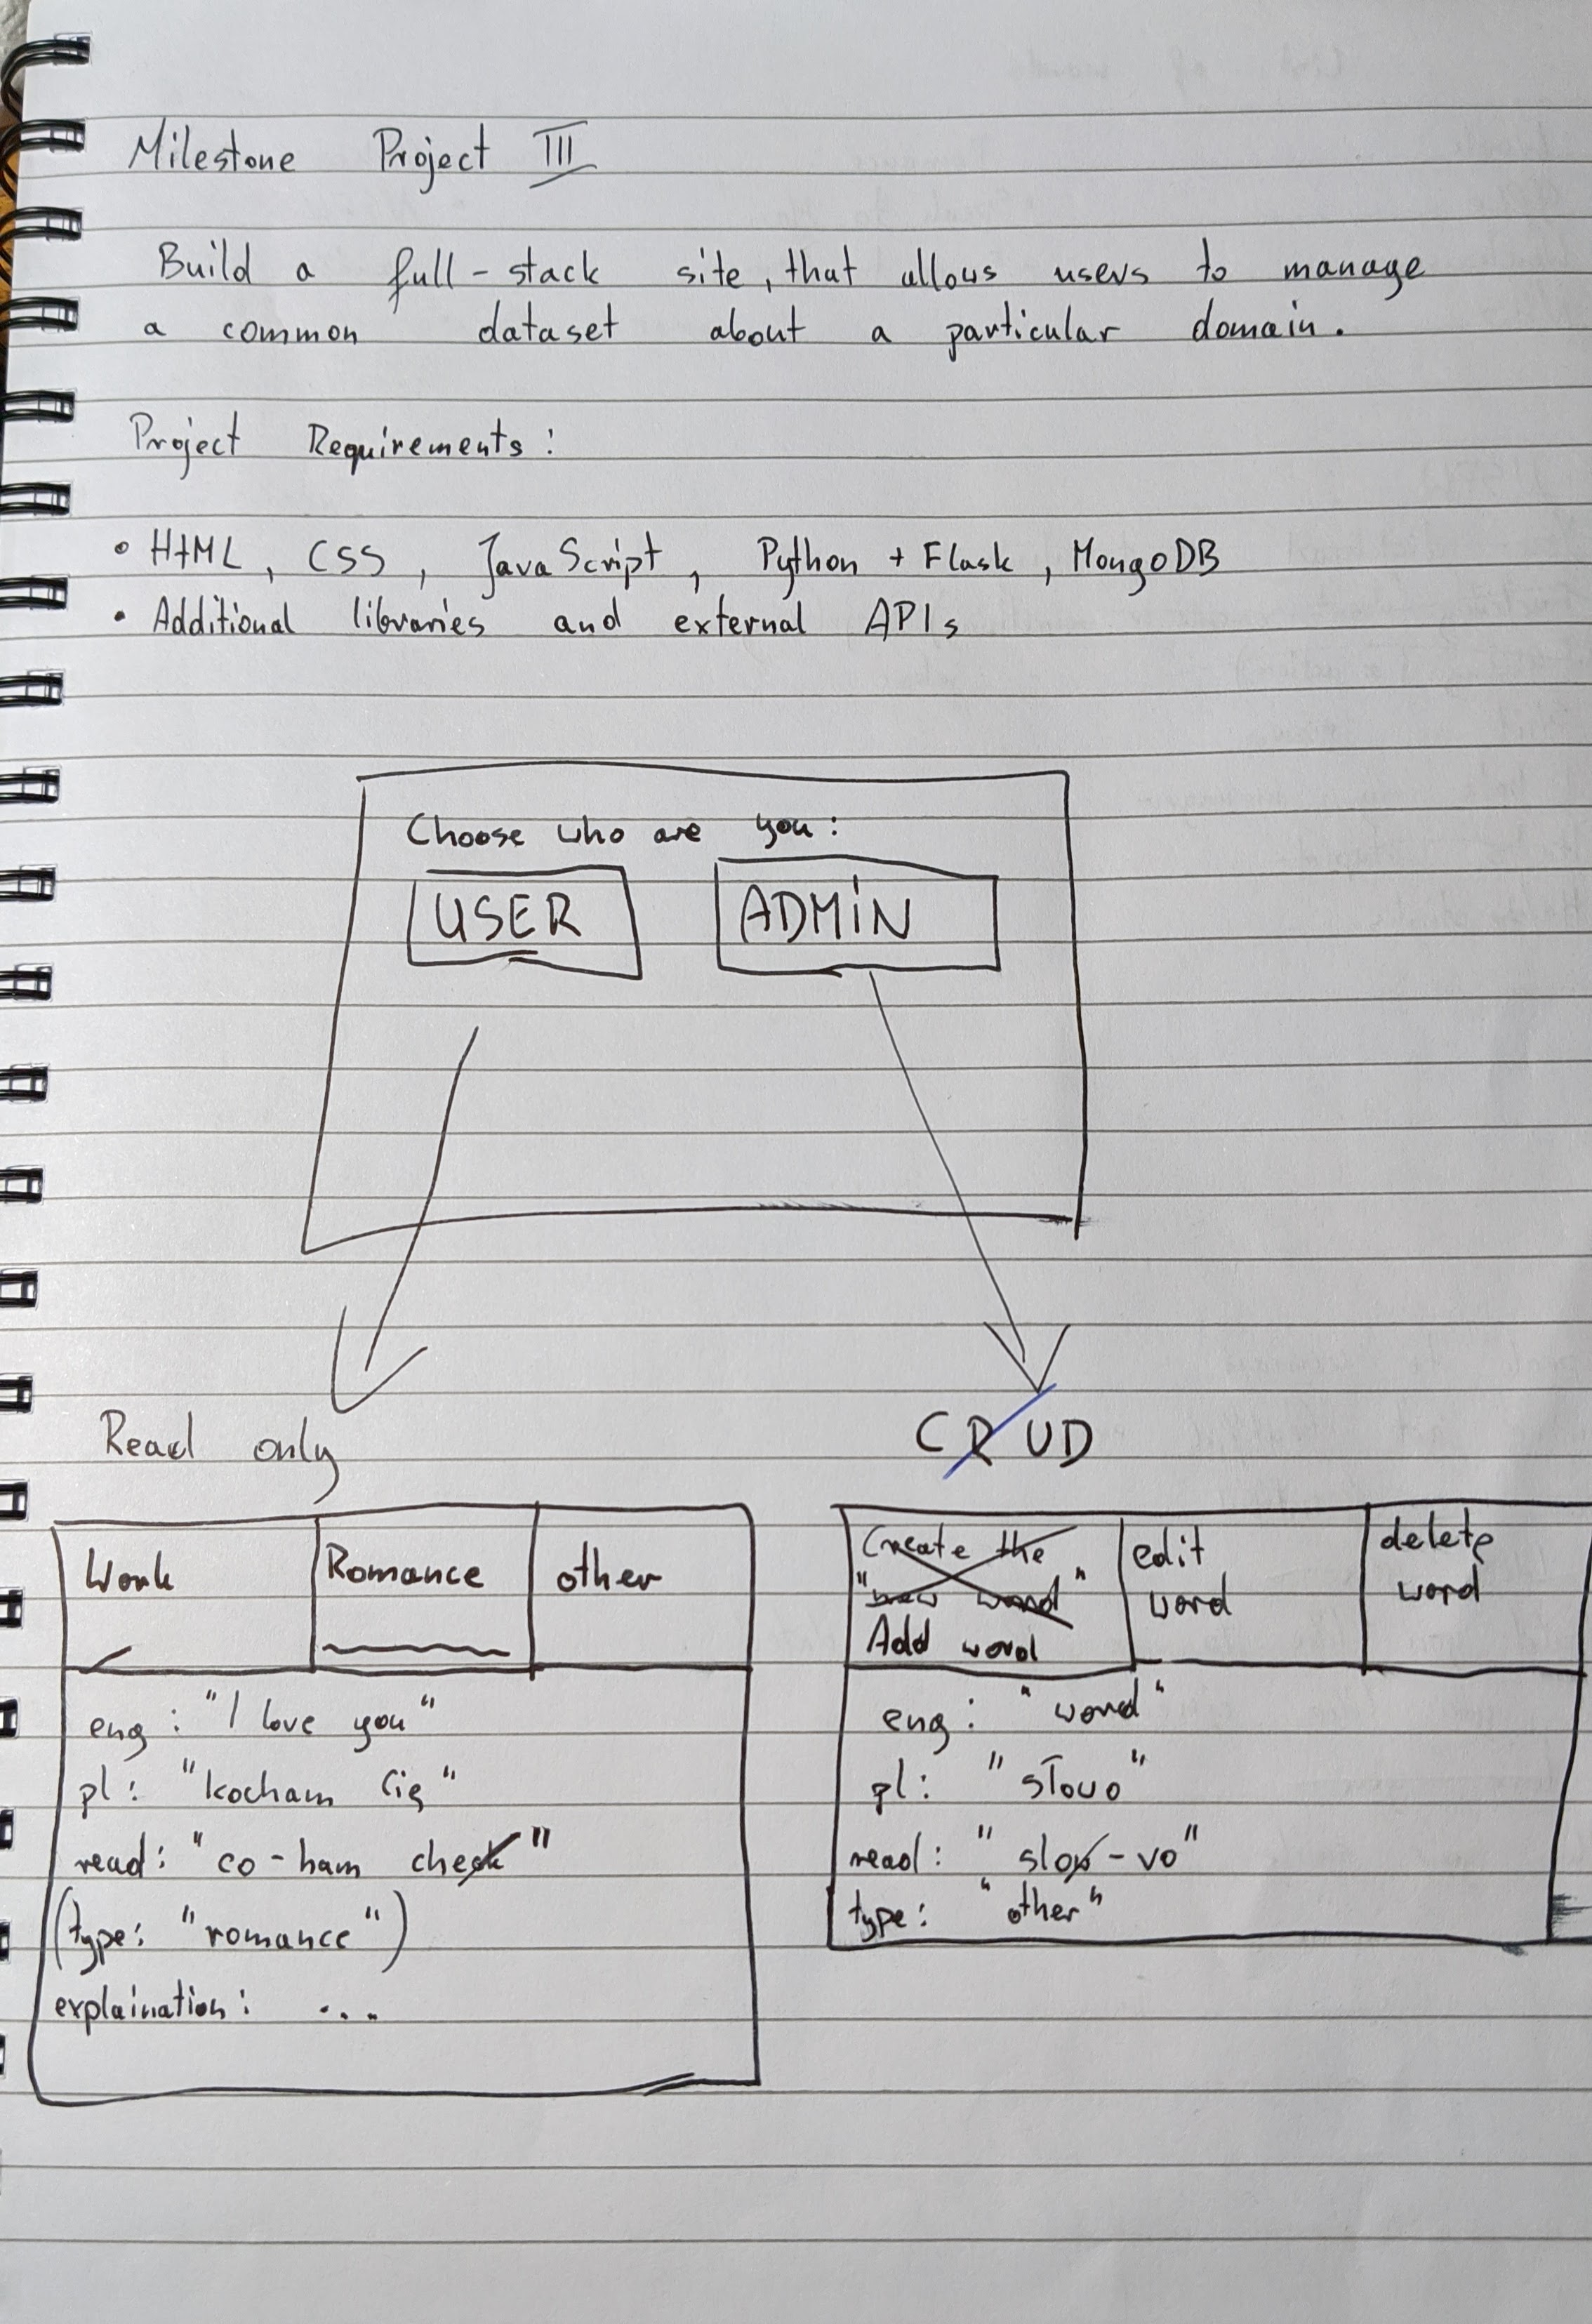 Milestone Project III
Build a full-stack site, that allows users to manage
a common dataset about a particular domain.
Project Requirements:
• HTML, CSS, JavaScript, Python + Flask, MongoDB
• Additional libraries and external APIs
Choose who are you:
USER ADMIN
Read only
CRUD
Work Romance other
eng: "I love you"
pl: "kocham Cię"
read: "co-ham check"
(type: "romance")
explaination: ...
Create the
"new word"
Add word
edit
word
delete
word
eng: "word"
pl: "słowo"
read: "slow-vo"
type: "other"